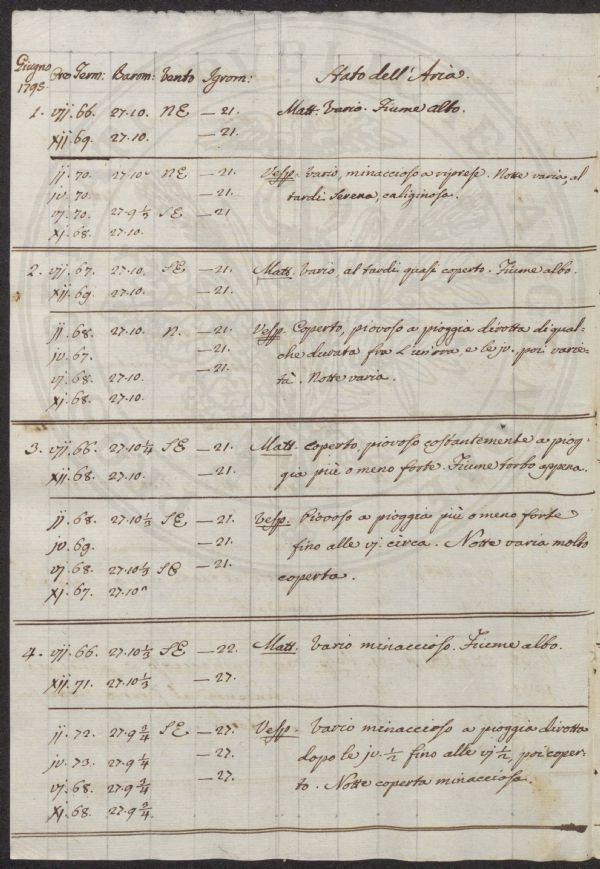 Giugno 1795. Ore Term: Barom: Vento Igrom: Stato dell'Aria.
1. vij. 66. 27.10. NE — 21. Matt. Vario. Fiume albo.
xij. 69. 27.10. — 21.
ij. 70. 27.10 NE — 21. Vesp. Vario, minaccioso a riprese. Notte varia, al
iv. 70. — 21. tardi serena, caliginosa.
vj. 70. 27.9 1/2 SE — 21
xj. 68. 27.10.
2. vij. 67. 27.10. SE — 21. Matt. Vario, al tardi quasi coperto. Fiume albo.
xij. 69. 27.10. — 21.
ij. 68. 27.10. N. — 21. Vesp. Coperto, piovoso a pioggia dirotta di qual-
iv. 67. — 21. che durata fra l'un'ora, e le iv. poi varie-
vj. 68. 27.10. — 21. tà. Notte varia.
xj. 68. 27.10.
3. vij. 66. 27.10 1/4 SE — 21. Matt. Coperto, piovoso costantemente a piog-
xij. 68. 27.10. — 21. gia più o meno forte. Fiume torbo appena.
ij. 68. 27.10 1/3 SE — 21. Vesp. Piovoso a pioggia più o meno forte
iv. 69. — 21. fino alle vj circa. Notte varia molto
vj. 68. 27.10 1/3 SE — 21. coperta.
xj. 67. 27.10
4. vij. 66. 27.10 1/3 SE — 22. Matt. Vario minaccioso. Fiume albo.
xij. 71. 27.10 1/3 — 27.
ij. 72. 27.9 3/4 SE — 27. Vesp. Vario minaccioso a pioggia dirotta
iv. 73. 27.9 1/4 — 27. dopo le iv. 1/2 fino alle vj 1/2, poi coper-
vj. 68. 27.9 3/4 — 27. to. Notte coperta minacciosa.
xj. 68. 27.9 3/4.